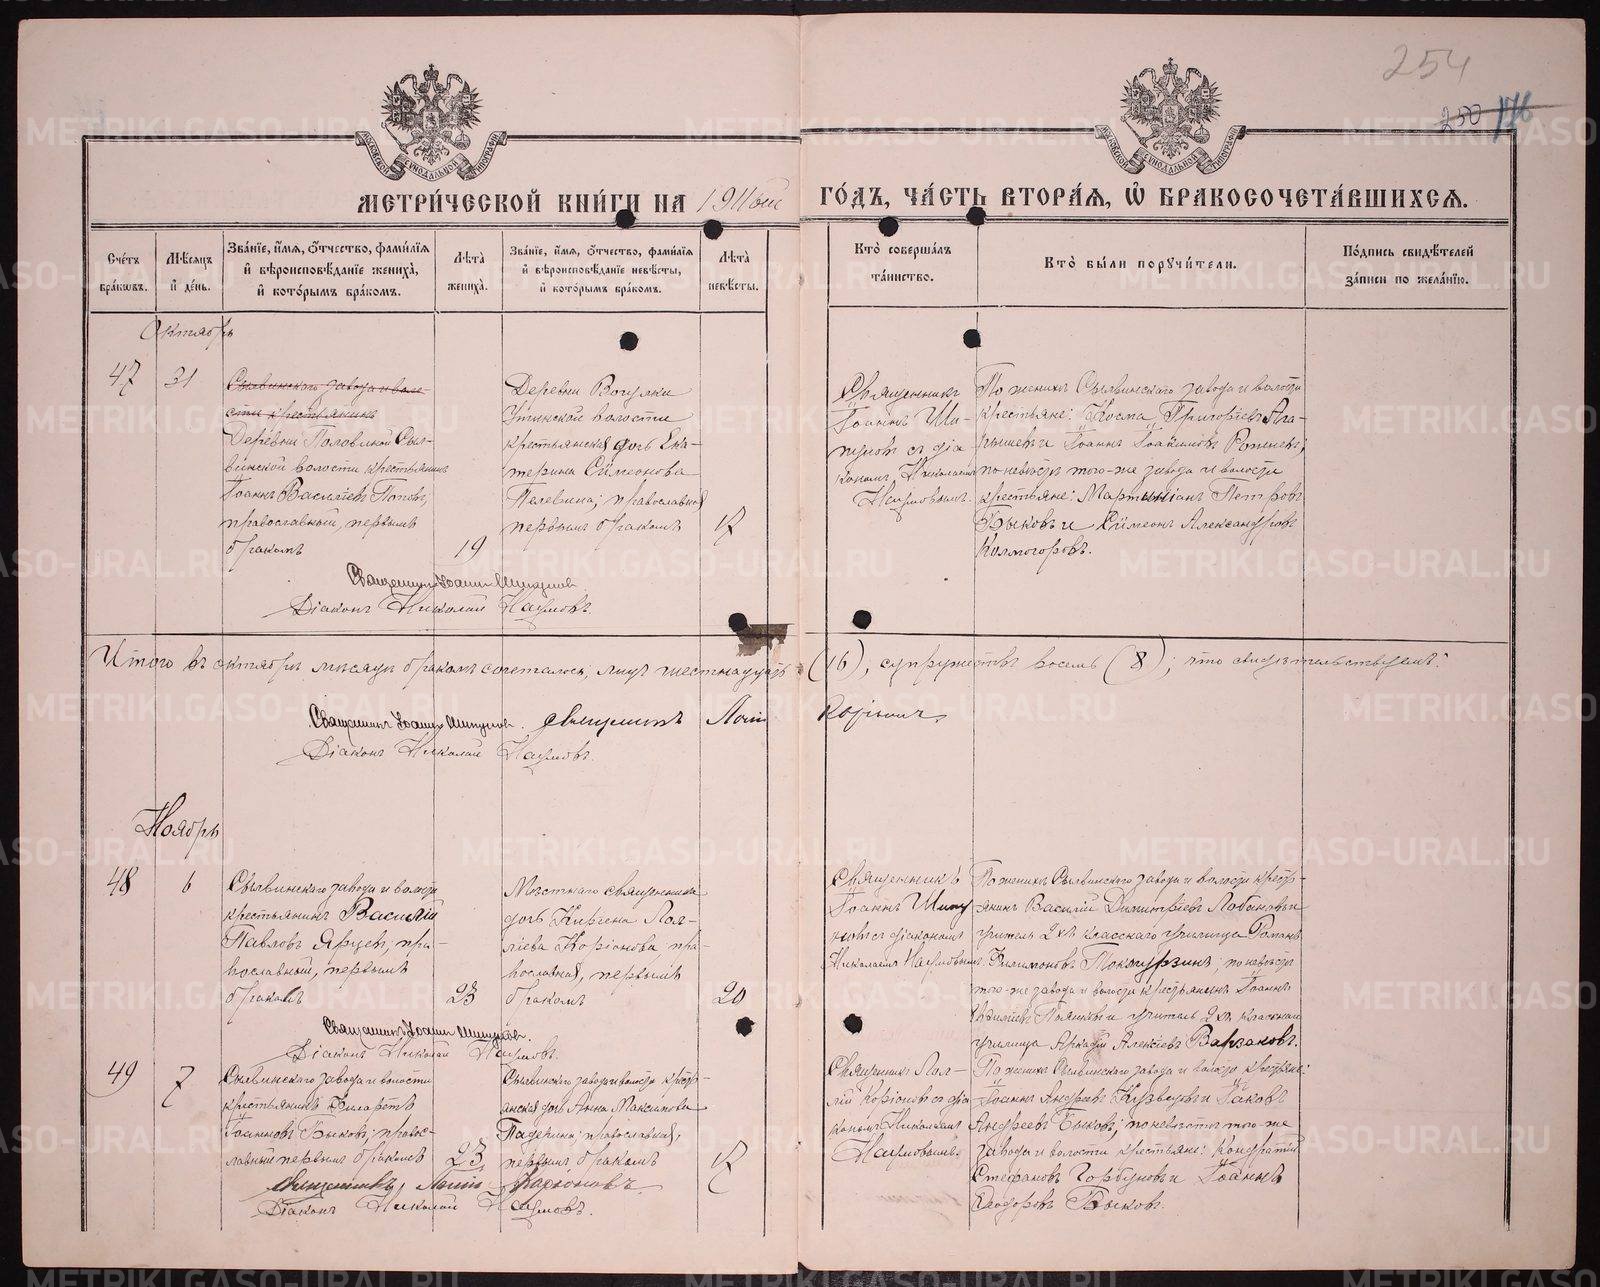 254
250 176
МЕТРИ́ЧЕСКОЙ КНИ́ГИ НА 1911 ГО́ДЪ, ЧА́СТЬ ВТОРА́Я, Ѡ БРАКОСОЧЕТА́ВШИХСЯ.
Сче́тъ бра́ковъ.
Мѣ́сяцъ и де́нь.
Зва́нїе, и́мя, о́тчество, фами́лїя и вѣроисповѣ́данїе жениха̀, и кото́рымъ бра́комъ.
Лѣ́та жениха̀.
Зва́нїе, и́мя, о́тчество, фами́лїя и вѣроисповѣ́данїе невѣ́сты, и кото́рымъ бра́комъ.
Лѣ́та невѣ́сты.
Кто̀ соверша́лъ та́инство.
Кто̀ бы́ли поручи́тели.
По́дпись свидѣ́телей за́писи по жела́нїю.
Октябрь
47
31
Сылвинскаго завода и воло-
сти крестьянинъ
Деревни Половиной Сыл-
винской волости крестьянинъ
Іоаннъ Василіевъ Поповъ,
православный, первымъ
бракомъ
19
Деревни Вогулки
Уткинской волости
крестьянская дочь Ека-
терина Симеонова
Пелевина; православной
первымъ бракомъ
17
Священникъ
Іоаннъ Ши-
съ діа
кономъ Николаемъ
Наумовымъ.
По женихѣ Сылвинскаго завода и волости
крестьяне: Косма Григоріевъ
и Іоаннъ Іоакимовъ
по невѣстѣ того-же завода и волости
крестьяне: Мартиніанъ Петровъ
Быковъ и Симеонъ Александровъ
Колмогоровъ.
Священникъ Іоаннъ
Діаконъ Николай Наумовъ.
Итого въ октябрѣ мѣсяцѣ бракомъ сочеталось, лицъ шестнадцать (16); супружествъ восемь (8); что свидѣтельствуемъ:
Священникъ Іоаннъ
Священникъ
Діаконъ Николай Наумовъ.
Ноябрь
48
6
Сылвинскаго завода и волости
крестьянинъ Василій
Павловъ Ярцевъ, пра-
вославный, первымъ
бракомъ
23
Мѣстнаго священника
дочь
Коріонова, пра-
вославная, первымъ
бракомъ
20
Священникъ
Іоаннъ
съ діакономъ
Николаемъ Наумовымъ.
По женихѣ Сылвинскаго завода и волости крестья-
янинъ Василій Димитріевъ Лобановъ и
учитель 2хъ класснаго училища Романъ
Филимоновъ; по невѣстѣ
того-же завода и волости крестьянинъ Іоаннъ
и учитель 2хъ класснаго
училища Аркадій Алексіевъ Варзаковъ.
Священникъ Іоаннъ
Діаконъ Николай Наумовъ.
49
7
Сылвинскаго завода и волости
крестьянинъ Филаретъ
Іоанновъ Быковъ, правос-
лавный первымъ бракомъ
23
Сылвинскаго завода и волости крестья-
анская дочь Анна Максимова
Падерина; православная,
первымъ бракомъ
17
Священникъ
Коріоновъ съ діа
кономъ Николаемъ
Наумовымъ.
По женихѣ Сылвинскаго завода и волости крестьяне:
Іоаннъ Андреевъ Кузнецовъ и Іаковъ
Андреевъ Быковъ; по невѣстѣ того-же
завода и волости крестьяне: Кондратій
Стефановъ Горбуновъ и Іоаннъ
Ѳеодоровъ Быковъ.
Священникъ Коріоновъ.
Діаконъ Николай Наумовъ.
METRIKI.GASO-URAL.RU